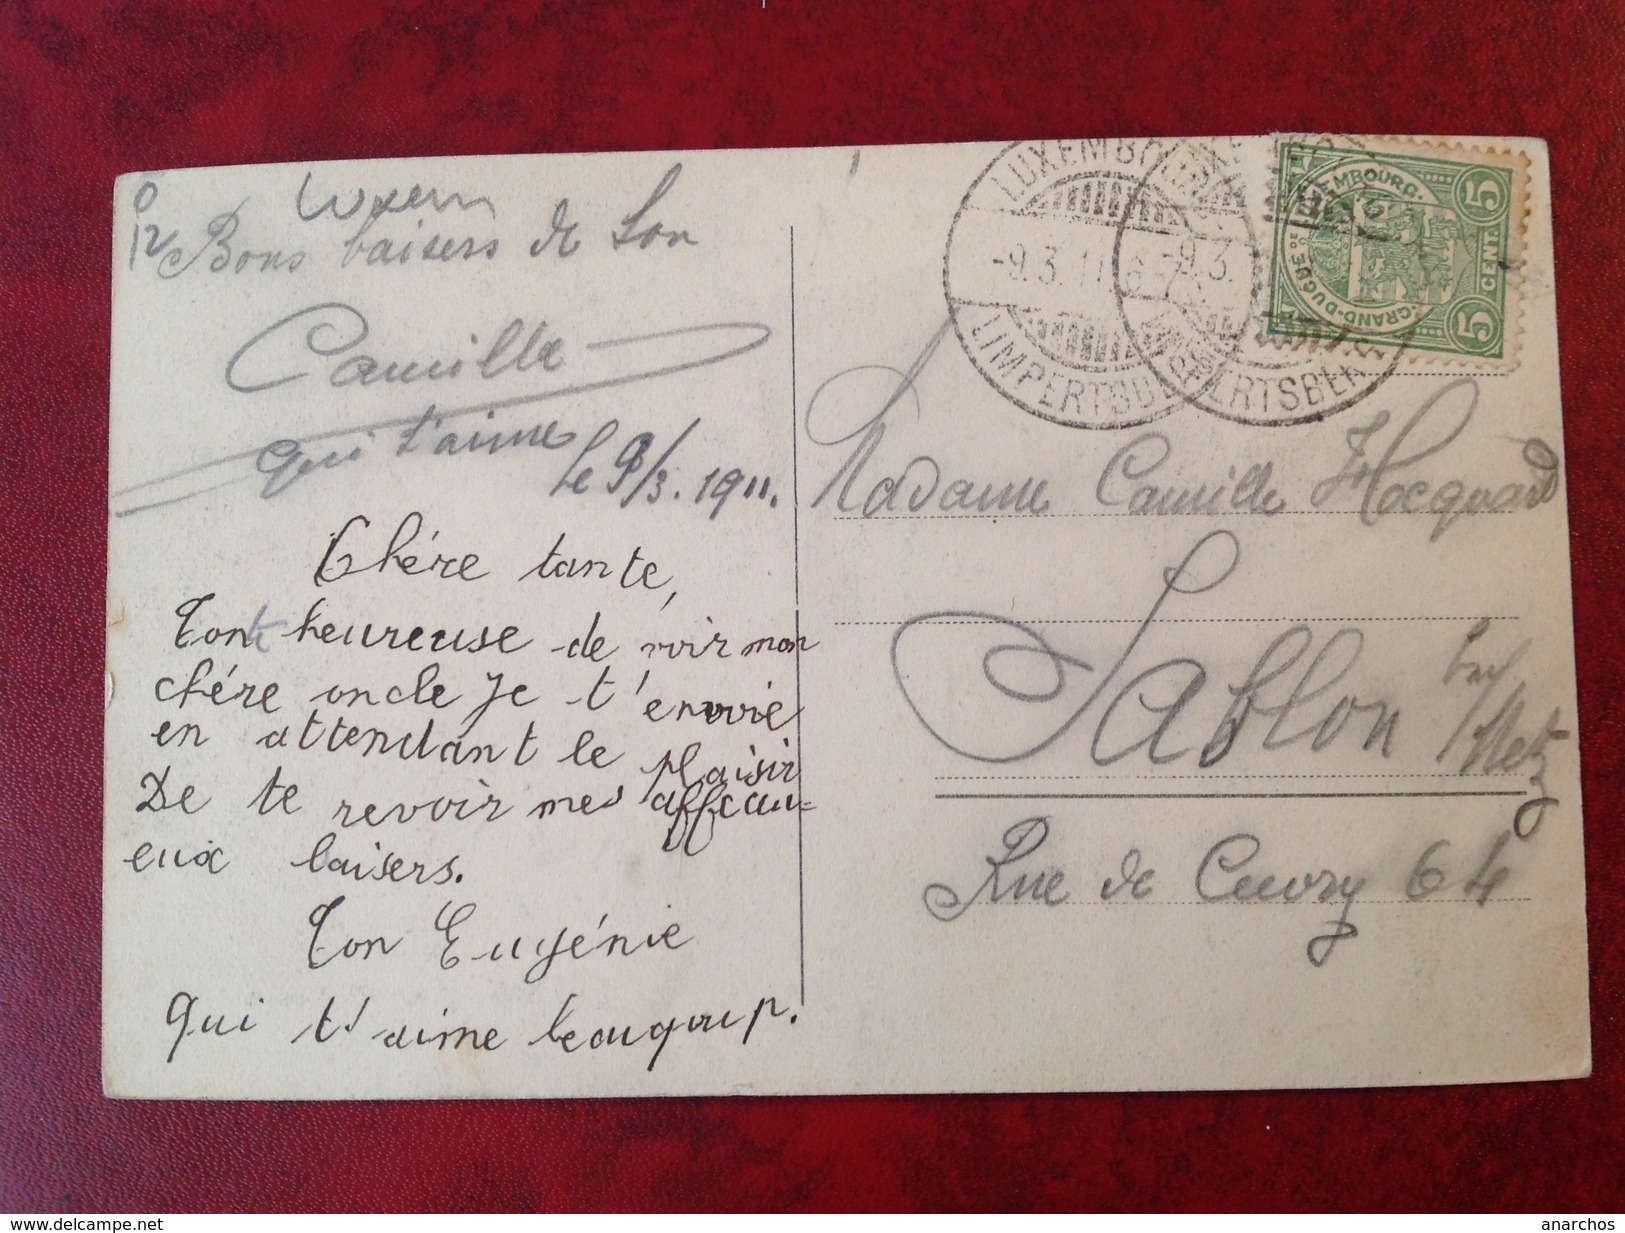 0
12
Luxem
Bons baisers de Son
Camille
qui t'aime
le 9/3. 1911.
Chére tante,
Tont heureuse de voir mon
chére oncle je t'envoie
en attendant le plaisir
De te revoir mes affecau=
eux baisers.
Ton Eugénie
qui t'aime beaugoup.
LUXEMBOURG
-9.3.11. 6-7
LIMPERTSBERG
9.3.
LIMPERTSBERG
LUXEMBOURG.
GRAND-DUCHÉ DE
5 CENT. 5
Madame Camille Hocquard
Sablon
Metz
Rue de Cuvry 64
www.delcampe.net
anarchos